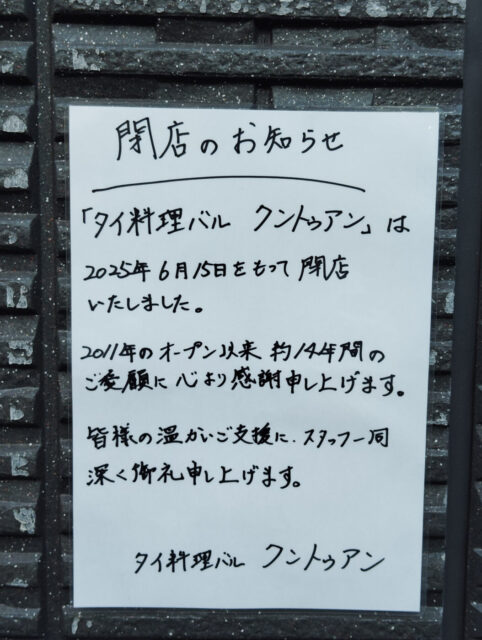 閉店のお知らせ
「タイ料理バル クントゥアン」は
2025年6月15日をもって閉店
いたしました。
2011年のオープン以来 約14年間の
ご愛顧に心より感謝申し上げます。
皆様の温かいご支援に、スタッフ一同
深く御礼申し上げます。
タイ料理バル クントゥアン